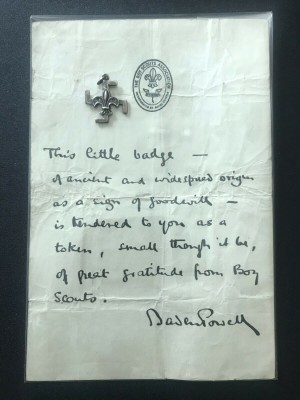 THE BOY SCOUTS ASSOCIATION
This little badge —
of ancient and widespread origin
as a sign of goodwill —
is tendered to you as a
token, small though it be,
of great gratitude from Boy
Scouts.
Baden Powell